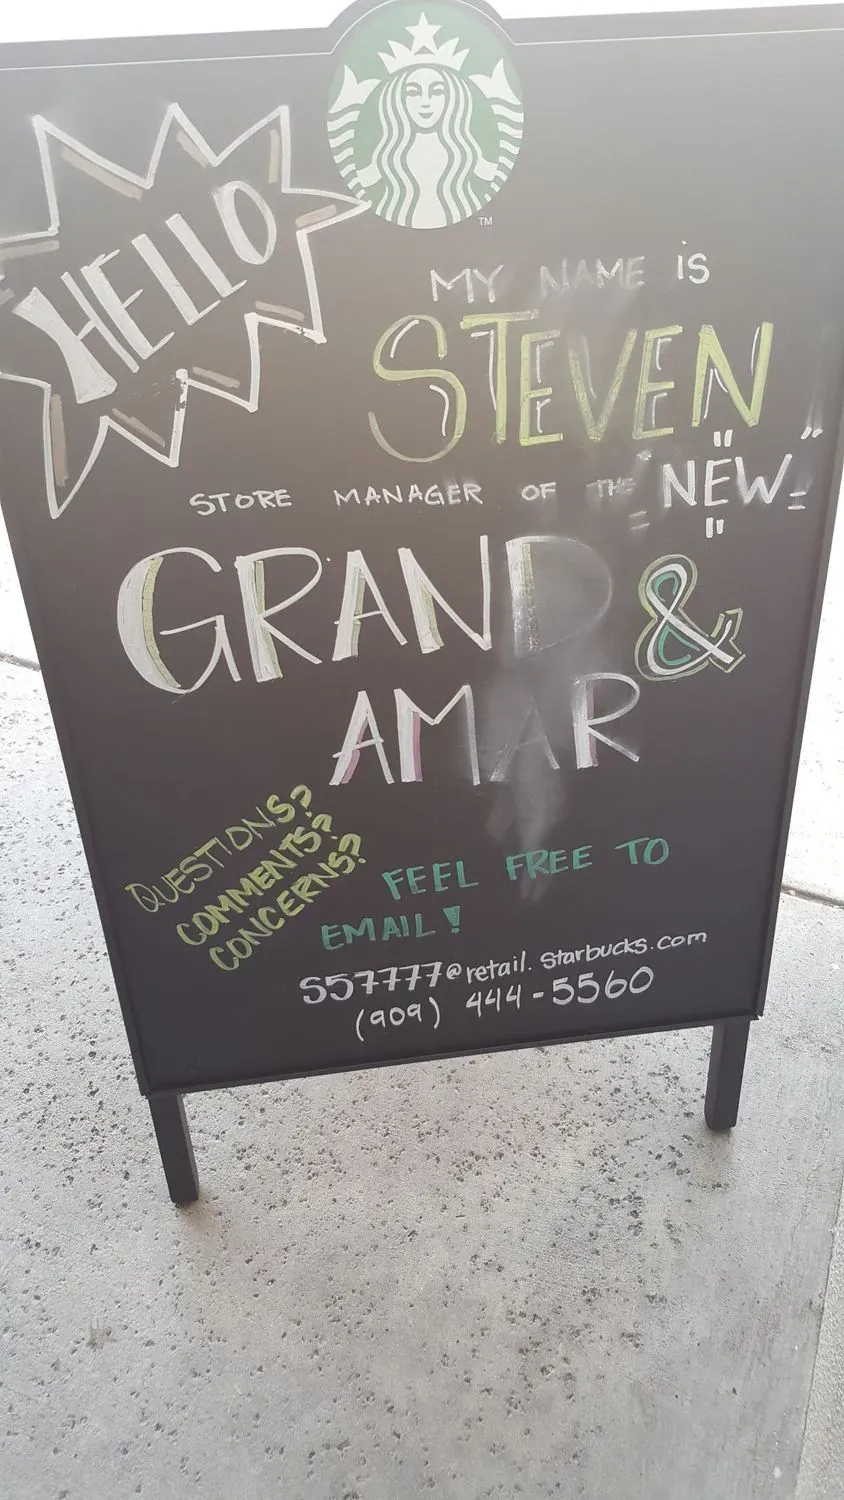 HELLO
MY NAME IS
STEVEN
STORE MANAGER OF THE "NEW"
GRAND &
AMAR
QUESTIONS?
COMMENTS?
CONCERNS?
FEEL FREE TO
EMAIL!
S57777@retail.starbucks.com
(909) 444-5560
TM